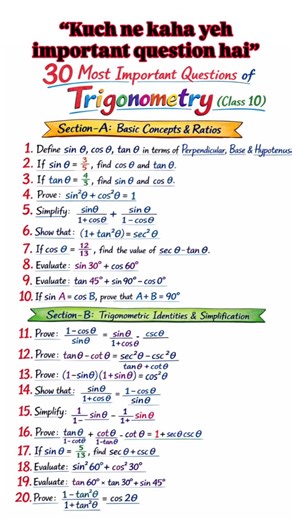 “Kuch ne kaha yeh
important question hai”
30 Most Important Questions of
Trigonometry (Class 10)
Section-A: Basic Concepts & Ratios
1. Define sin θ, cos θ, tan θ in terms of Perpendicular, Base & Hypotenus
2. If sin θ = 3/5, find cos θ and tan θ.
3. If tan θ = 4/3, find sin θ and cos θ.
4. Prove: sin²θ + cos²θ = 1
5. Simplify: sinθ/1+cosθ + sinθ/1−cosθ
6. Show that: (1+tan²θ) = sec²θ
7. If cos θ = 12/13, find the value of sec θ - tan θ.
8. Evaluate: sin 30° + cos 60°
9. Evaluate: tan 45° + sin 90° − cos 0°
10. If sin A = cos B, prove that A + B = 90°
Section-B: Trigonometric Identities & Simplification
11. Prove: 1−cosθ/sinθ = sinθ/1+cosθ - cscθ
12. Prove: tanθ−cotθ = sec²θ−csc²θ/tanθ+cotθ
13. Prove: (1−sinθ)(1+sinθ) = cos²θ
14. Show that: sinθ/1+cosθ = 1−cosθ/sinθ
15. Simplify: 1/1−sinθ − 1/1+sinθ
16. Prove: tanθ/1-cotθ + cotθ/1-tanθ - cotθ = 1+secθcscθ
17. If sinθ = 5/13, find secθ + cscθ
18. Evaluate: sin²60° + cos²30°
19. Evaluate: tan 60° × tan 30° + sin 45°
20. Prove: 1−tan²θ/1+tan²θ = cos 2θ